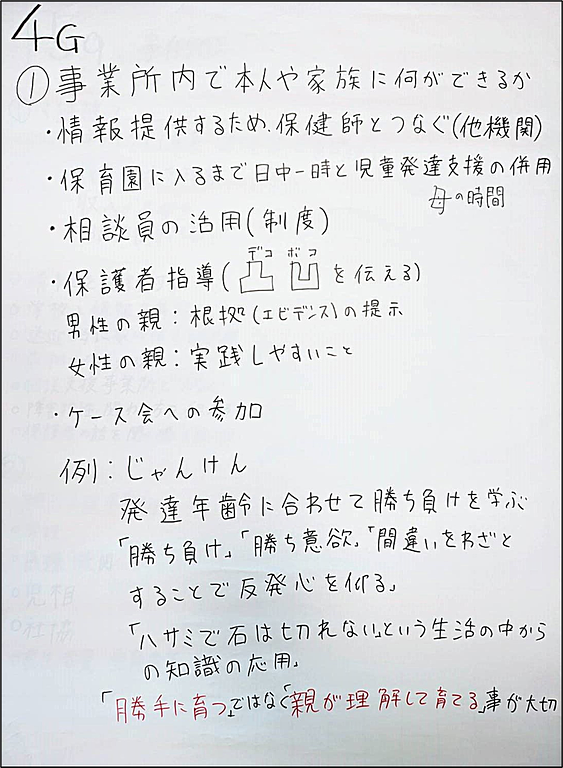 4G
①事業所内で本人や家族に何ができるか
・情報提供するため、保健師とつなぐ(他機関)
・保育園に入るまで日中一時と児童発達支援の併用
母の時間
・相談員の活用(制度)
デコ ボコ
・保護者指導( を伝える)
男性の親：根拠(エビデンス)の提示
女性の親：実践しやすいこと
・ケース会への参加
例：じゃんけん
発達年齢に合わせて勝ち負けを学ぶ
「勝ち負け」「勝ち意欲」「間違いをわざと
することで反発心を作る」
「ハサミで石は切れない」という生活の中から
の知識の応用」
「勝手に育つ」ではなく「親が理解して育てる」事が大切